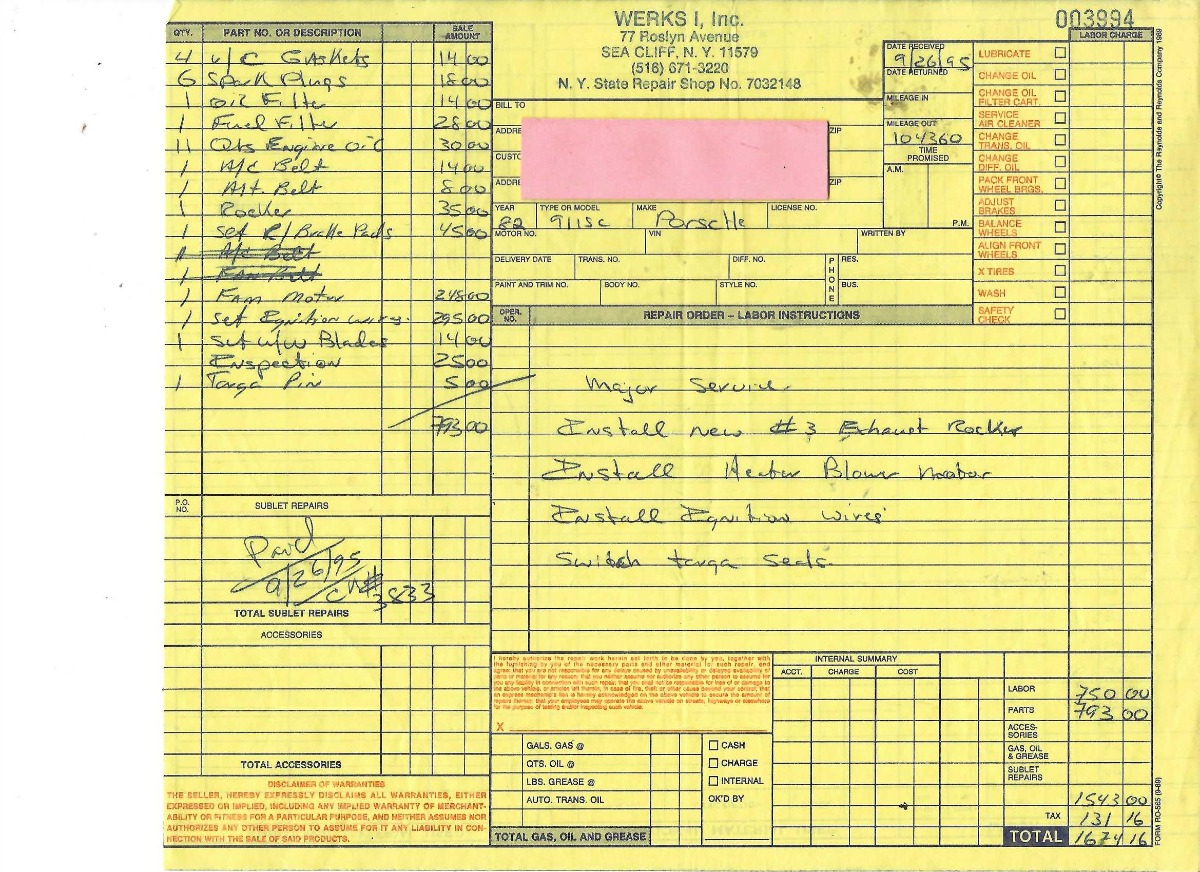 WERKS I, Inc.
77 Roslyn Avenue
SEA CLIFF, N. Y. 11579
(516) 671-3220
N. Y. State Repair Shop No. 7032148
003994
QTY. PART NO. OR DESCRIPTION SALE AMOUNT
4 V/C Gaskets 14 00
6 Spark Plugs 18 00
1 Oil Filter 14 00
1 Fuel Filter 28 00
11 Qts Engine Oil 30 00
1 A/c Belt 14 00
1 Alt Belt 8 00
1 Rocker 35 00
1 Set R/Brake Pads 45 00
1 A/c Belt
1 Fan Belt
1 Fan Motor 248 00
1 Set Ignition wires. 295 00
1 Set W/W Blades 14 00
Inspection 25 00
1 Targa Pin 5 00
793 00
P.O. NO. SUBLET REPAIRS
Paid
9/26/95
CK#
3833
TOTAL SUBLET REPAIRS
ACCESSORIES
TOTAL ACCESSORIES
DISCLAIMER OF WARRANTIES
THE SELLER, HEREBY EXPRESSLY DISCLAIMS ALL WARRANTIES, EITHER
EXPRESSED OR IMPLIED, INCLUDING ANY IMPLIED WARRANTY OF MERCHANT-
ABILITY OR FITNESS FOR A PARTICULAR PURPOSE, AND NEITHER ASSUMES NOR
AUTHORIZES ANY OTHER PERSON TO ASSUME FOR IT ANY LIABILITY IN CON-
NECTION WITH THE SALE OF SAID PRODUCTS.
BILL TO
ADDRE ZIP
CUSTO
ADDRE ZIP
YEAR TYPE OR MODEL MAKE LICENSE NO.
82 911sc Porsche
MOTOR NO. VIN WRITTEN BY
DELIVERY DATE TRANS. NO. DIFF. NO. PHONE RES.
PAINT AND TRIM NO. BODY NO. STYLE NO. BUS.
DATE RECEIVED
9/26/95
DATE RETURNED
MILEAGE IN
MILEAGE OUT
104360
TIME PROMISED
A.M.
P.M.
LABOR CHARGE
LUBRICATE
CHANGE OIL
CHANGE OIL FILTER CART.
SERVICE AIR CLEANER
CHANGE TRANS. OIL
CHANGE DIFF. OIL
PACK FRONT WHEEL BRGS.
ADJUST BRAKES
BALANCE WHEELS
ALIGN FRONT WHEELS
X TIRES
WASH
SAFETY CHECK
OPER. NO. REPAIR ORDER – LABOR INSTRUCTIONS
Major Service.
Install new #3 Exhaust Rocker
Install Heater Blower motor
Install Ignition wires
Switch targa seals.
I hereby authorize the repair work herein set forth to be done by you, together with
the furnishing by you of the necessary parts and other material for such repair, and
agree: that you are not responsible for any delays caused by unavailability or delayed availability of
parts or material for any reason; that you neither assume nor authorize any other person to assume for
you any liability in connection with such repair; that you shall not be responsible for loss of or damage to
the above vehicle, or articles left therein, in case of fire, theft or other cause beyond your control; that
an express mechanic's lien is hereby acknowledged on the above vehicle to secure the amount of
repairs thereto; that your employees may operate the above vehicle on streets, highways or elsewhere
for the purpose of testing and/or inspecting such vehicle.
X
GALS. GAS @
QTS. OIL @
LBS. GREASE @
AUTO. TRANS. OIL
TOTAL GAS, OIL AND GREASE
CASH
CHARGE
INTERNAL
OK'D BY
INTERNAL SUMMARY
ACCT. CHARGE COST
LABOR 750 00
PARTS 793 00
ACCES- SORIES
GAS, OIL & GREASE
SUBLET REPAIRS
1543 00
TAX 131 16
TOTAL 1674 16
Copyright© The Reynolds and Reynolds Company 1989
FORM RO-565 (9-89)